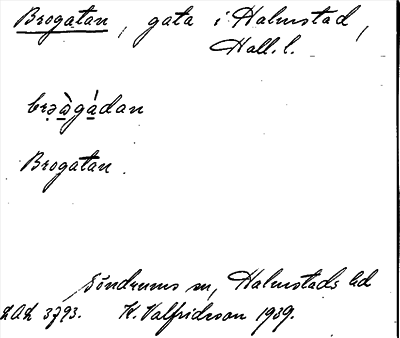 Brogatan, gata i Halmstad,
Hall. l.
brəὰgádan
Brogatan
Söndrums sn, Halmstads hd
LAL 3793. K. Valfridsson 1939.